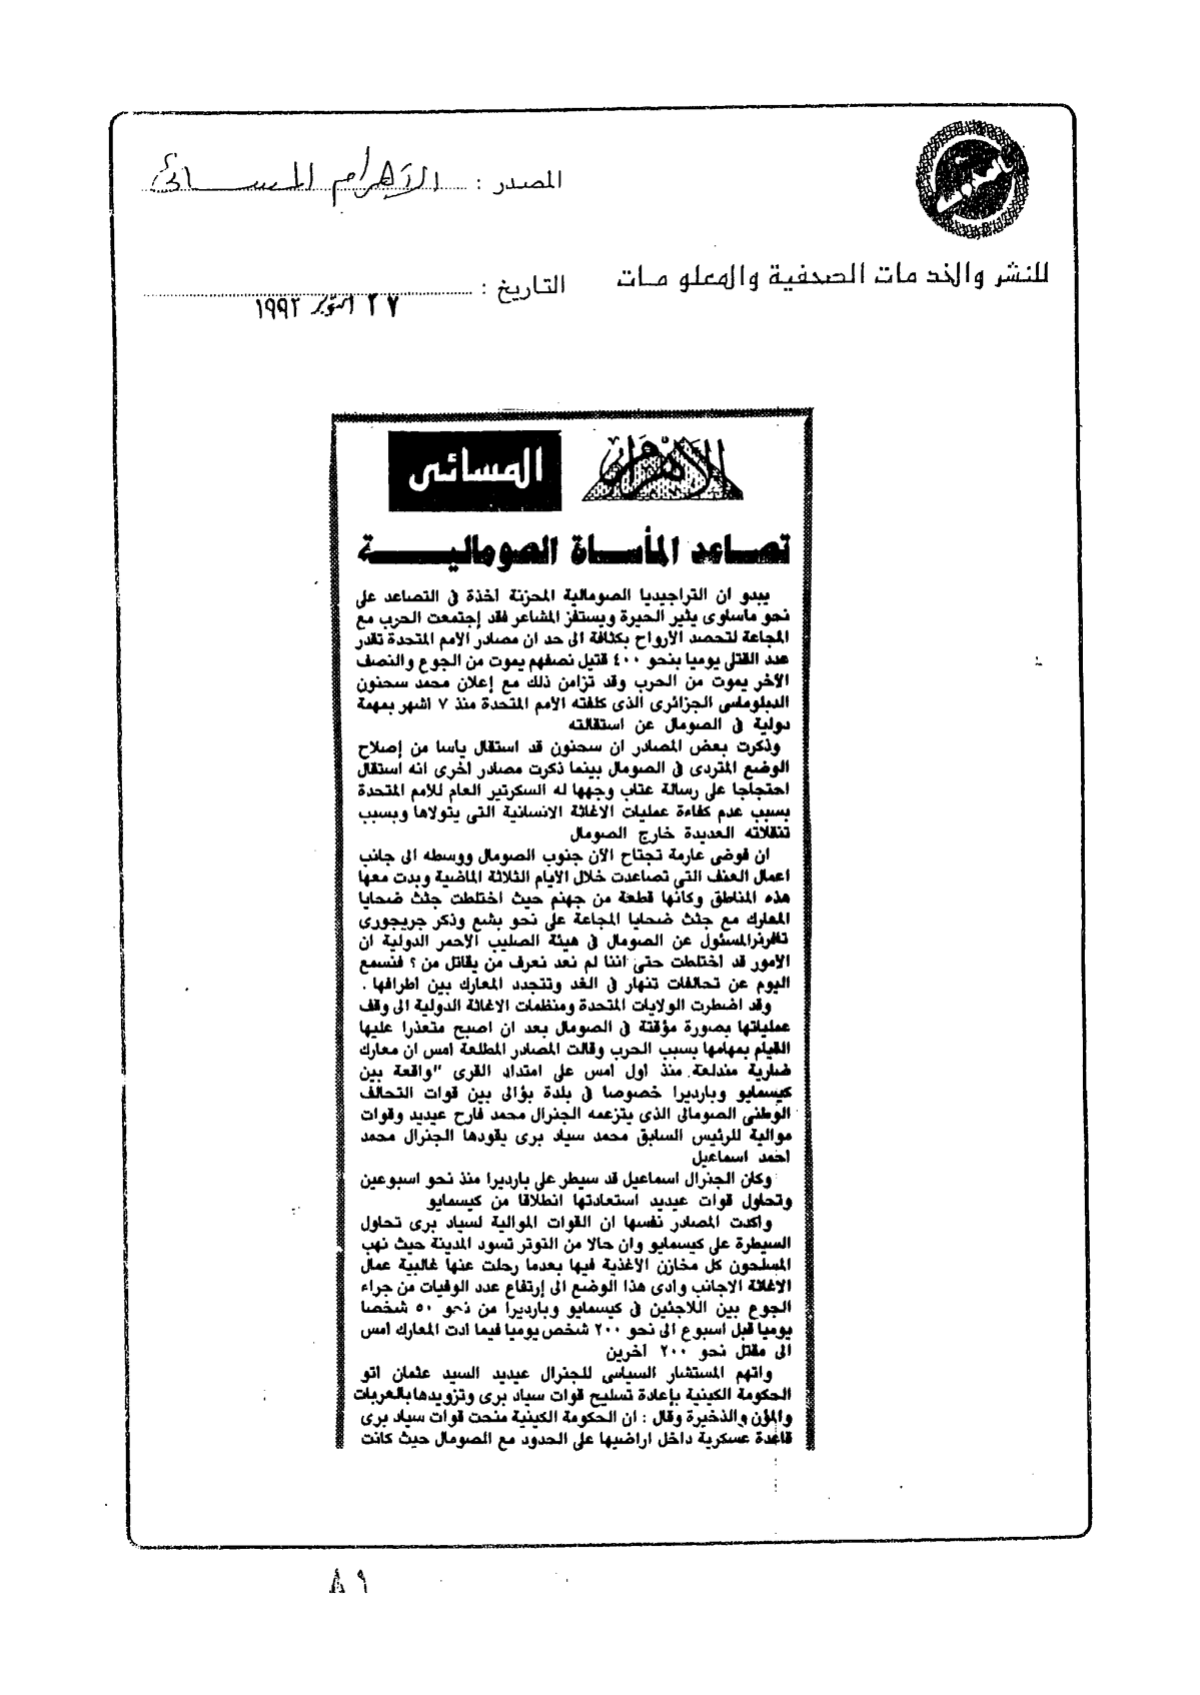 المصدر : الأهرام المسائى
للنشر والخدمات الصحفية والمعلومات
التاريخ :
٢٧ اكتوبر ١٩٩٢
الأهرام
المسائى
تصاعد المأساة الصومالية
يبدو ان التراجيديا الصومالية المحزنة اخذة فى التصاعد على
نحو ماساوى يثير الحيرة ويستفز المشاعر فقد إجتمعت الحرب مع
المجاعة لتحصد الارواح بكثافة الى حد ان مصادر الامم المتحدة تقدر
عدد القتلى يوميا بنحو ٤٠٠ قتيل نصفهم يموت من الجوع والنصف
الآخر يموت من الحرب وقد تزامن ذلك مع إعلان محمد سحنون
الدبلوماسى الجزائرى الذى كلفته الامم المتحدة منذ ٧ اشهر بمهمة
دولية فى الصومال عن استقالته
وذكرت بعض المصادر ان سحنون قد استقال ياسا من إصلاح
الوضع المتردى فى الصومال بينما ذكرت مصادر اخرى انه استقال
احتجاجا على رسالة عتاب وجهها له السكرتير العام للامم المتحدة
بسبب عدم كفاءة عمليات الاغاثة الانسانية التى يتولاها وبسبب
تنقلاته العديدة خارج الصومال
ان فوضى عارمة تجتاح الآن جنوب الصومال ووسطه الى جانب
اعمال العنف التى تصاعدت خلال الايام الثلاثة الماضية وبدت معها
هذه المناطق وكانها قطعة من جهنم حيث اختلطت جثث ضحايا
المعارك مع جثث ضحايا المجاعة على نحو بشع وذكر جريجورى
المسئول عن الصومال فى هيئة الصليب الاحمر الدولية ان
الامور قد اختلطت حتى اننا لم نعد نعرف من يقاتل من ؟ فنسمع
اليوم عن تحالفات تنهار فى الغد وتتجدد المعارك بين اطرافها .
وقد اضطرت الولايات المتحدة ومنظمات الاغاثة الدولية الى وقف
عملياتها بصورة مؤقتة فى الصومال بعد ان اصبح متعذرا عليها
القيام بمهامها بسبب الحرب وقالت المصادر المطلعة امس ان معارك
ضارية مندلعة منذ اول امس على امتداد القرى "واقعة بين
كيسمايو وبارديرا خصوصا فى بلدة بؤالى بين قوات التحالف
الوطنى الصومالى الذى يتزعمه الجنرال محمد فارح عيديد وقوات
موالية للرئيس السابق محمد سياد برى يقودها الجنرال محمد
احمد اسماعيل
وكان الجنرال اسماعيل قد سيطر على بارديرا منذ نحو اسبوعين
وتحاول قوات عيديد استعادتها انطلاقا من كيسمايو
واكدت المصادر نفسها ان القوات الموالية لسياد برى تحاول
السيطرة على كيسمايو وان حالا من التوتر تسود المدينة حيث نهب
المسلحون كل مخازن الاغذية فيها بعدما رحلت عنها غالبية عمال
الاغاثة الاجانب وادى هذا الوضع الى إرتفاع عدد الوفيات من جراء
الجوع بين اللاجئين فى كيسمايو وبارديرا من نحو ٥٠ شخصا
يوميا قبل اسبوع الى نحو ٢٠٠ شخص يوميا فيما ادت المعارك امس
الى مقتل نحو ٢٠٠ اخرين
واتهم المستشار السياسى للجنرال عيديد السيد عثمان اتو
الحكومة الكينية بإعادة تسليح قوات سياد برى وتزويدها بالعربات
والمؤن والذخيرة وقال : ان الحكومة الكينية منحت قوات سياد برى
قاعدة عسكرية داخل اراضيها على الحدود مع الصومال حيث كانت
٨٩